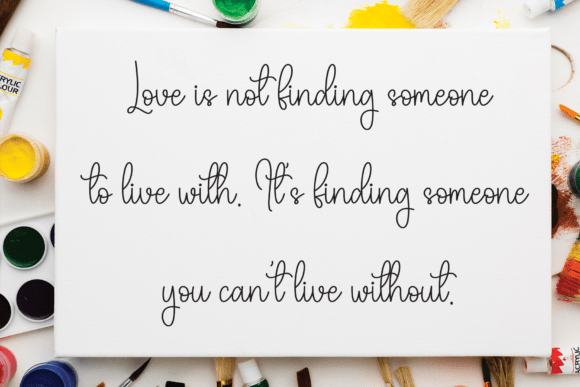 Love is not finding someone
to live with. It's finding someone
you can't live without.
ACRYLIC
COLOUR
ACRYLIC